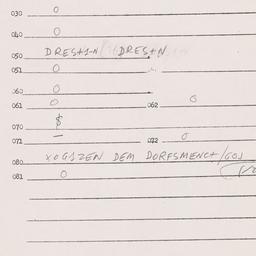 030 0
040 0
050 DRESTIN DRESTN
051 0
060 0
061 0 062 0
070 $
071 — 072 0
080 DEM
081 0